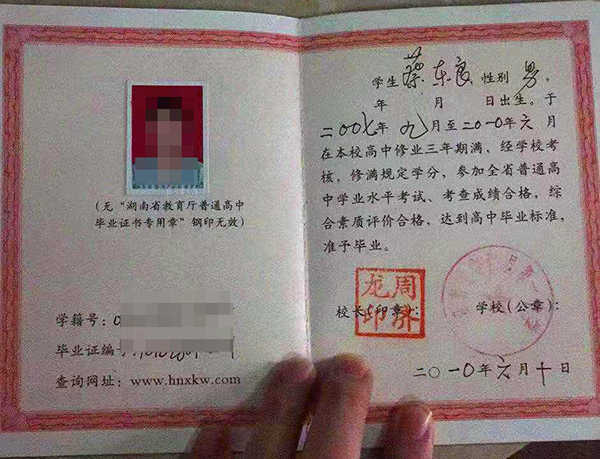 (无“湖南省教育厅普通高中
毕业证书专用章”钢印无效)
学籍号:
毕业证编号:
查询网址: www.hnxkw.com
学生 蔡东良, 性别 男,
年 月 日出生。于
二〇〇七年 九 月至二〇一〇年六月
在本校高中修业三年期满、经学校考
核, 修满规定学分, 参加全省普通高
中学业水平考试、考查成绩合格, 综
合素质评价合格, 达到高中毕业标准,
准予毕业。
校长(印章): 学校(公章):
龙周
印济
二〇一〇年六月十日